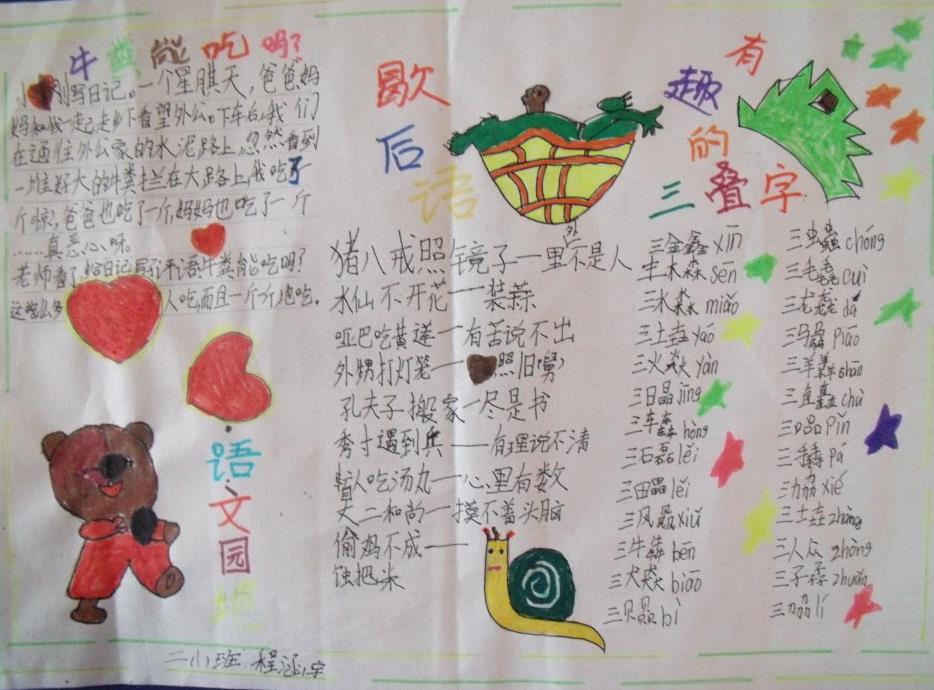 牛粪能吃吗?
小刚写日记。一个星期天,爸爸妈
妈和我一起走乡下看望外公。下车后,我们
在通往外公家的水泥路上,忽然看到
一堆好大的牛粪拦在大路上,我吃了
个惊,爸爸也吃了一个,妈妈也吃了一个
……真恶心呀。
老师看了,给日记写了评语:牛粪能吃吗?
这么多人吃而且一个个地吃.
语文园地
二小班 程
歇后语
猪八戒照镜子一里外不是人
水仙不开花一装蒜
哑巴吃黄莲一有苦说不出
外甥打灯笼一照旧(舅)
孔夫子搬家一尽是书
秀才遇到兵——有理说不清
盲人吃汤丸一心里有数
丈二和尚一摸不着头脑
偷鸡不成——
蚀把米
有趣的三叠字
三金鑫 xīn
三木森 sēn
三水淼 miǎo
三土垚 yáo
三火焱 yàn
三日晶 jīng
三车轰 hōng
三石磊 lěi
三田畾 lěi
三风飍 xiū
三牛犇 bēn
三犬猋 biāo
三贝赑 bì
三虫蟲 chóng
三毛毳 cuì
三龙龘 dá
三马骉 piāo
三羊羴 shān
三直矗 chù
三口品 pǐn
三手掱 pá
三力劦 xié
三土垚 zhàng
三人众 zhòng
三子孨 zhuǎn
三刀刕 lí